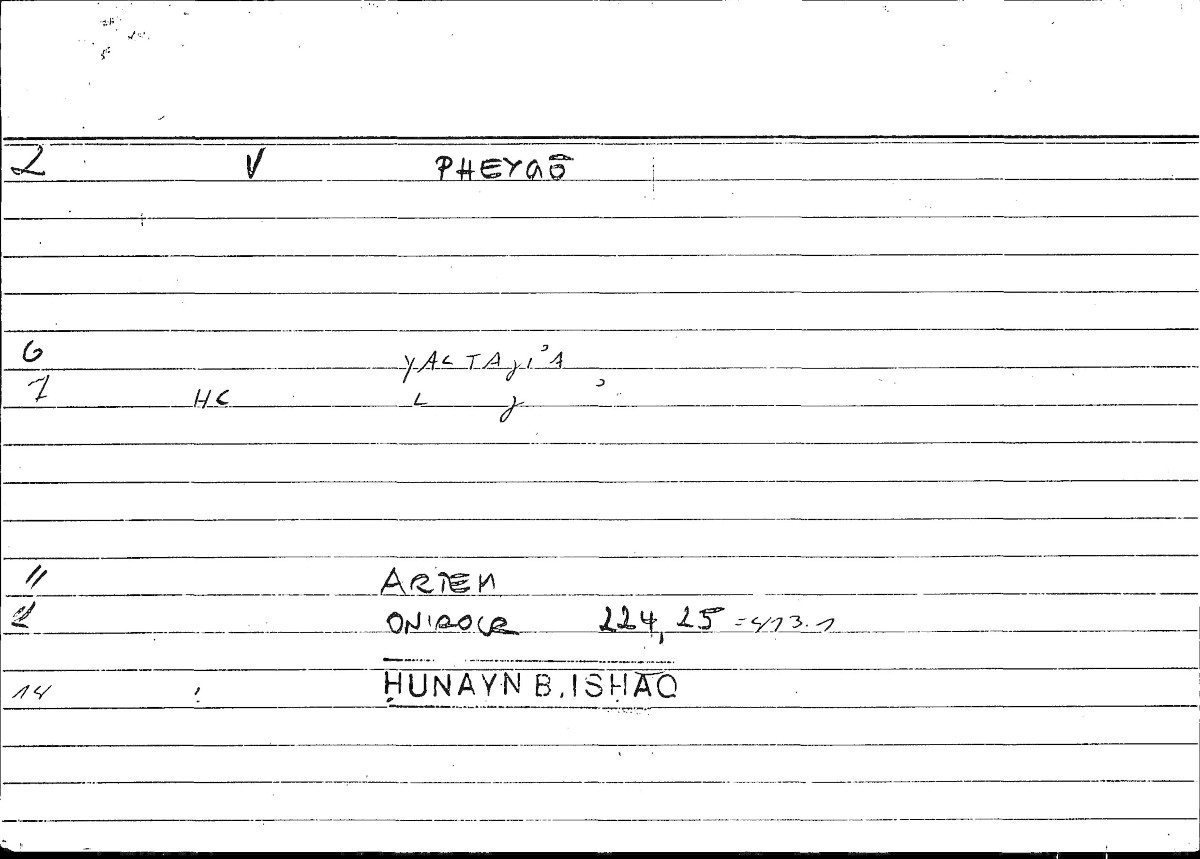 2 V PHEYGŌ
6 YALTAJI'A
7 HC L J '
11 ARTEM
2 ONIROCR 224, 25 = 413.1
14 : ḤUNAYN B. ISḤĀQ